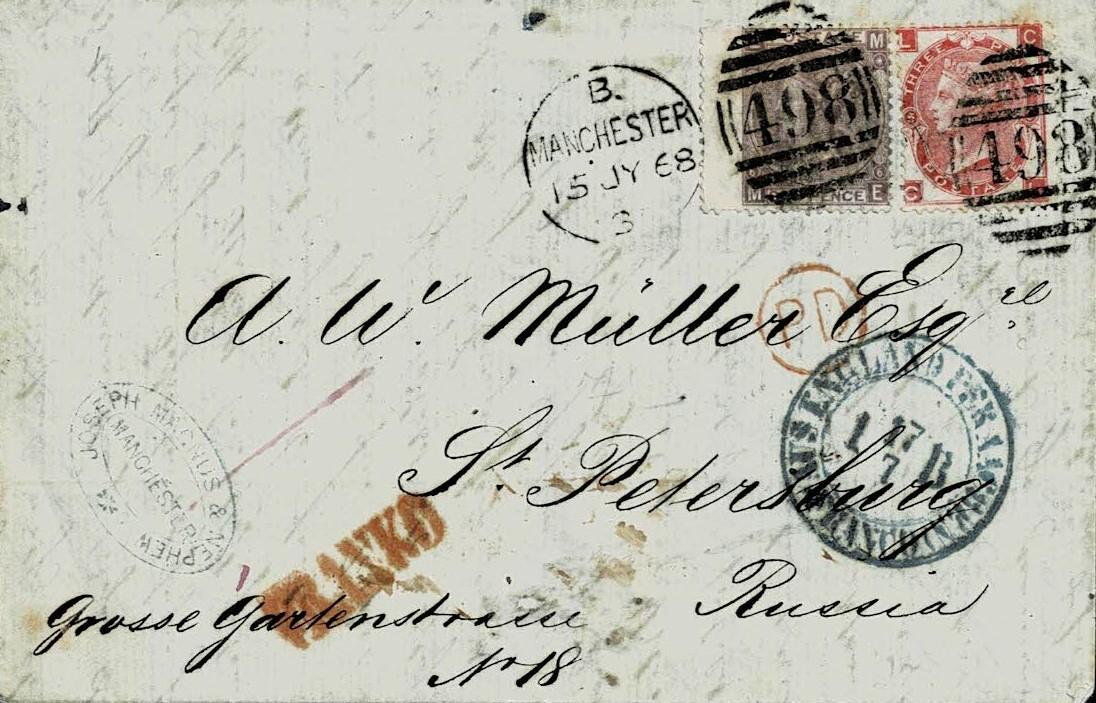 B.
MANCHESTER
15 JY 68
3
POSTAGE
M
498
M PENCE E
L C
THREE
498
C
A. W. Müller Esqre
PD
AUS ENGLAND PER AACHEN
17 7
1 B
FRANCO
St. Petersburg
JOSEPH MAGNUS & NEPHEW
MANCHESTER
FRANKO
Russia
Grosse Gartenstrasse
No 18